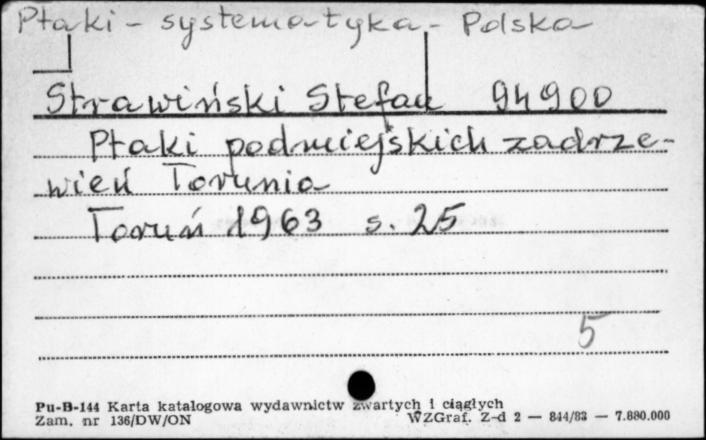 Ptaki - systematyka - Polska
Strawiński Stefan 94900
Ptaki podmiejskich zadrze-
wień Torunia
Toruń 1963 s. 25
5
Pu-B-144 Karta katalogowa wydawnictw zwartych i ciągłych
Zam. nr 136/DW/ON WZGraf. Z-d 2 — 844/83 — 7.880.000